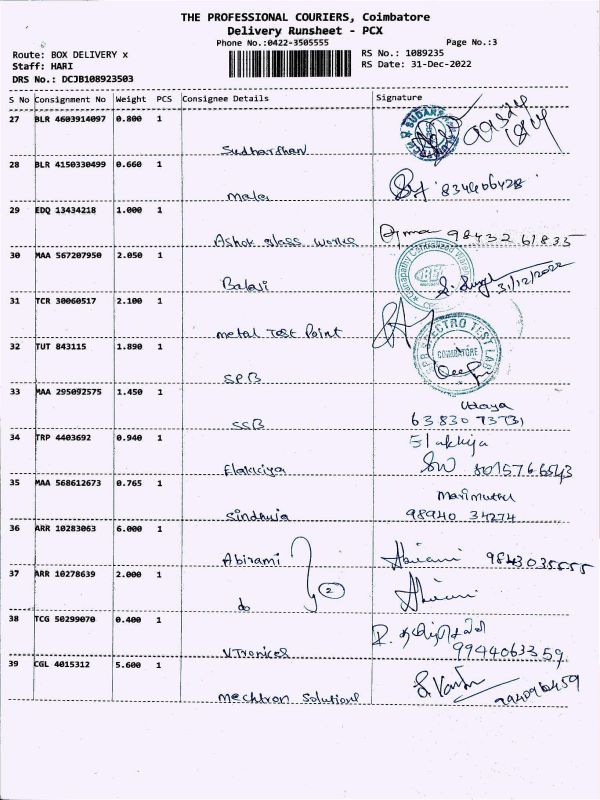 THE PROFESSIONAL COURIERS, Coimbatore
Delivery Runsheet - PCX
Phone No.:0422-3505555 Page No.:3
Route: BOX DELIVERY x RS No.: 1089235
Staff: HARI RS Date: 31-Dec-2022
DRS No.: DCJB108923503
S No Consignment No Weight PCS Consignee Details Signature
27 BLR 4603914097 0.800 1
Sudharshan
28 BLR 4150330499 0.660 1
Mala
29 EDQ 13434218 1.000 1
Ashok glass works 98432 61835
30 MAA 567207950 2.050 1
Balaji 31/12/2022
31 TCR 30060517 2.100 1
metal Test Point
32 TUT 843115 1.890 1
COIMBATORE
SPB
33 MAA 295092575 1.450 1
Udaya
SSB
34 TRP 4403692 0.940 1
Elakkiya
Elakkiya 8015766543
35 MAA 568612673 0.765 1
Marimuthu
Sindhuja 98940 34274
36 ARR 10283063 6.000 1
Abirami 9843035555
37 ARR 10278639 2.000 1
do 2
38 TCG 50299070 0.400 1
VTronics 9944063359
39 CGL 4015312 5.600 1
Mechtron Solutions